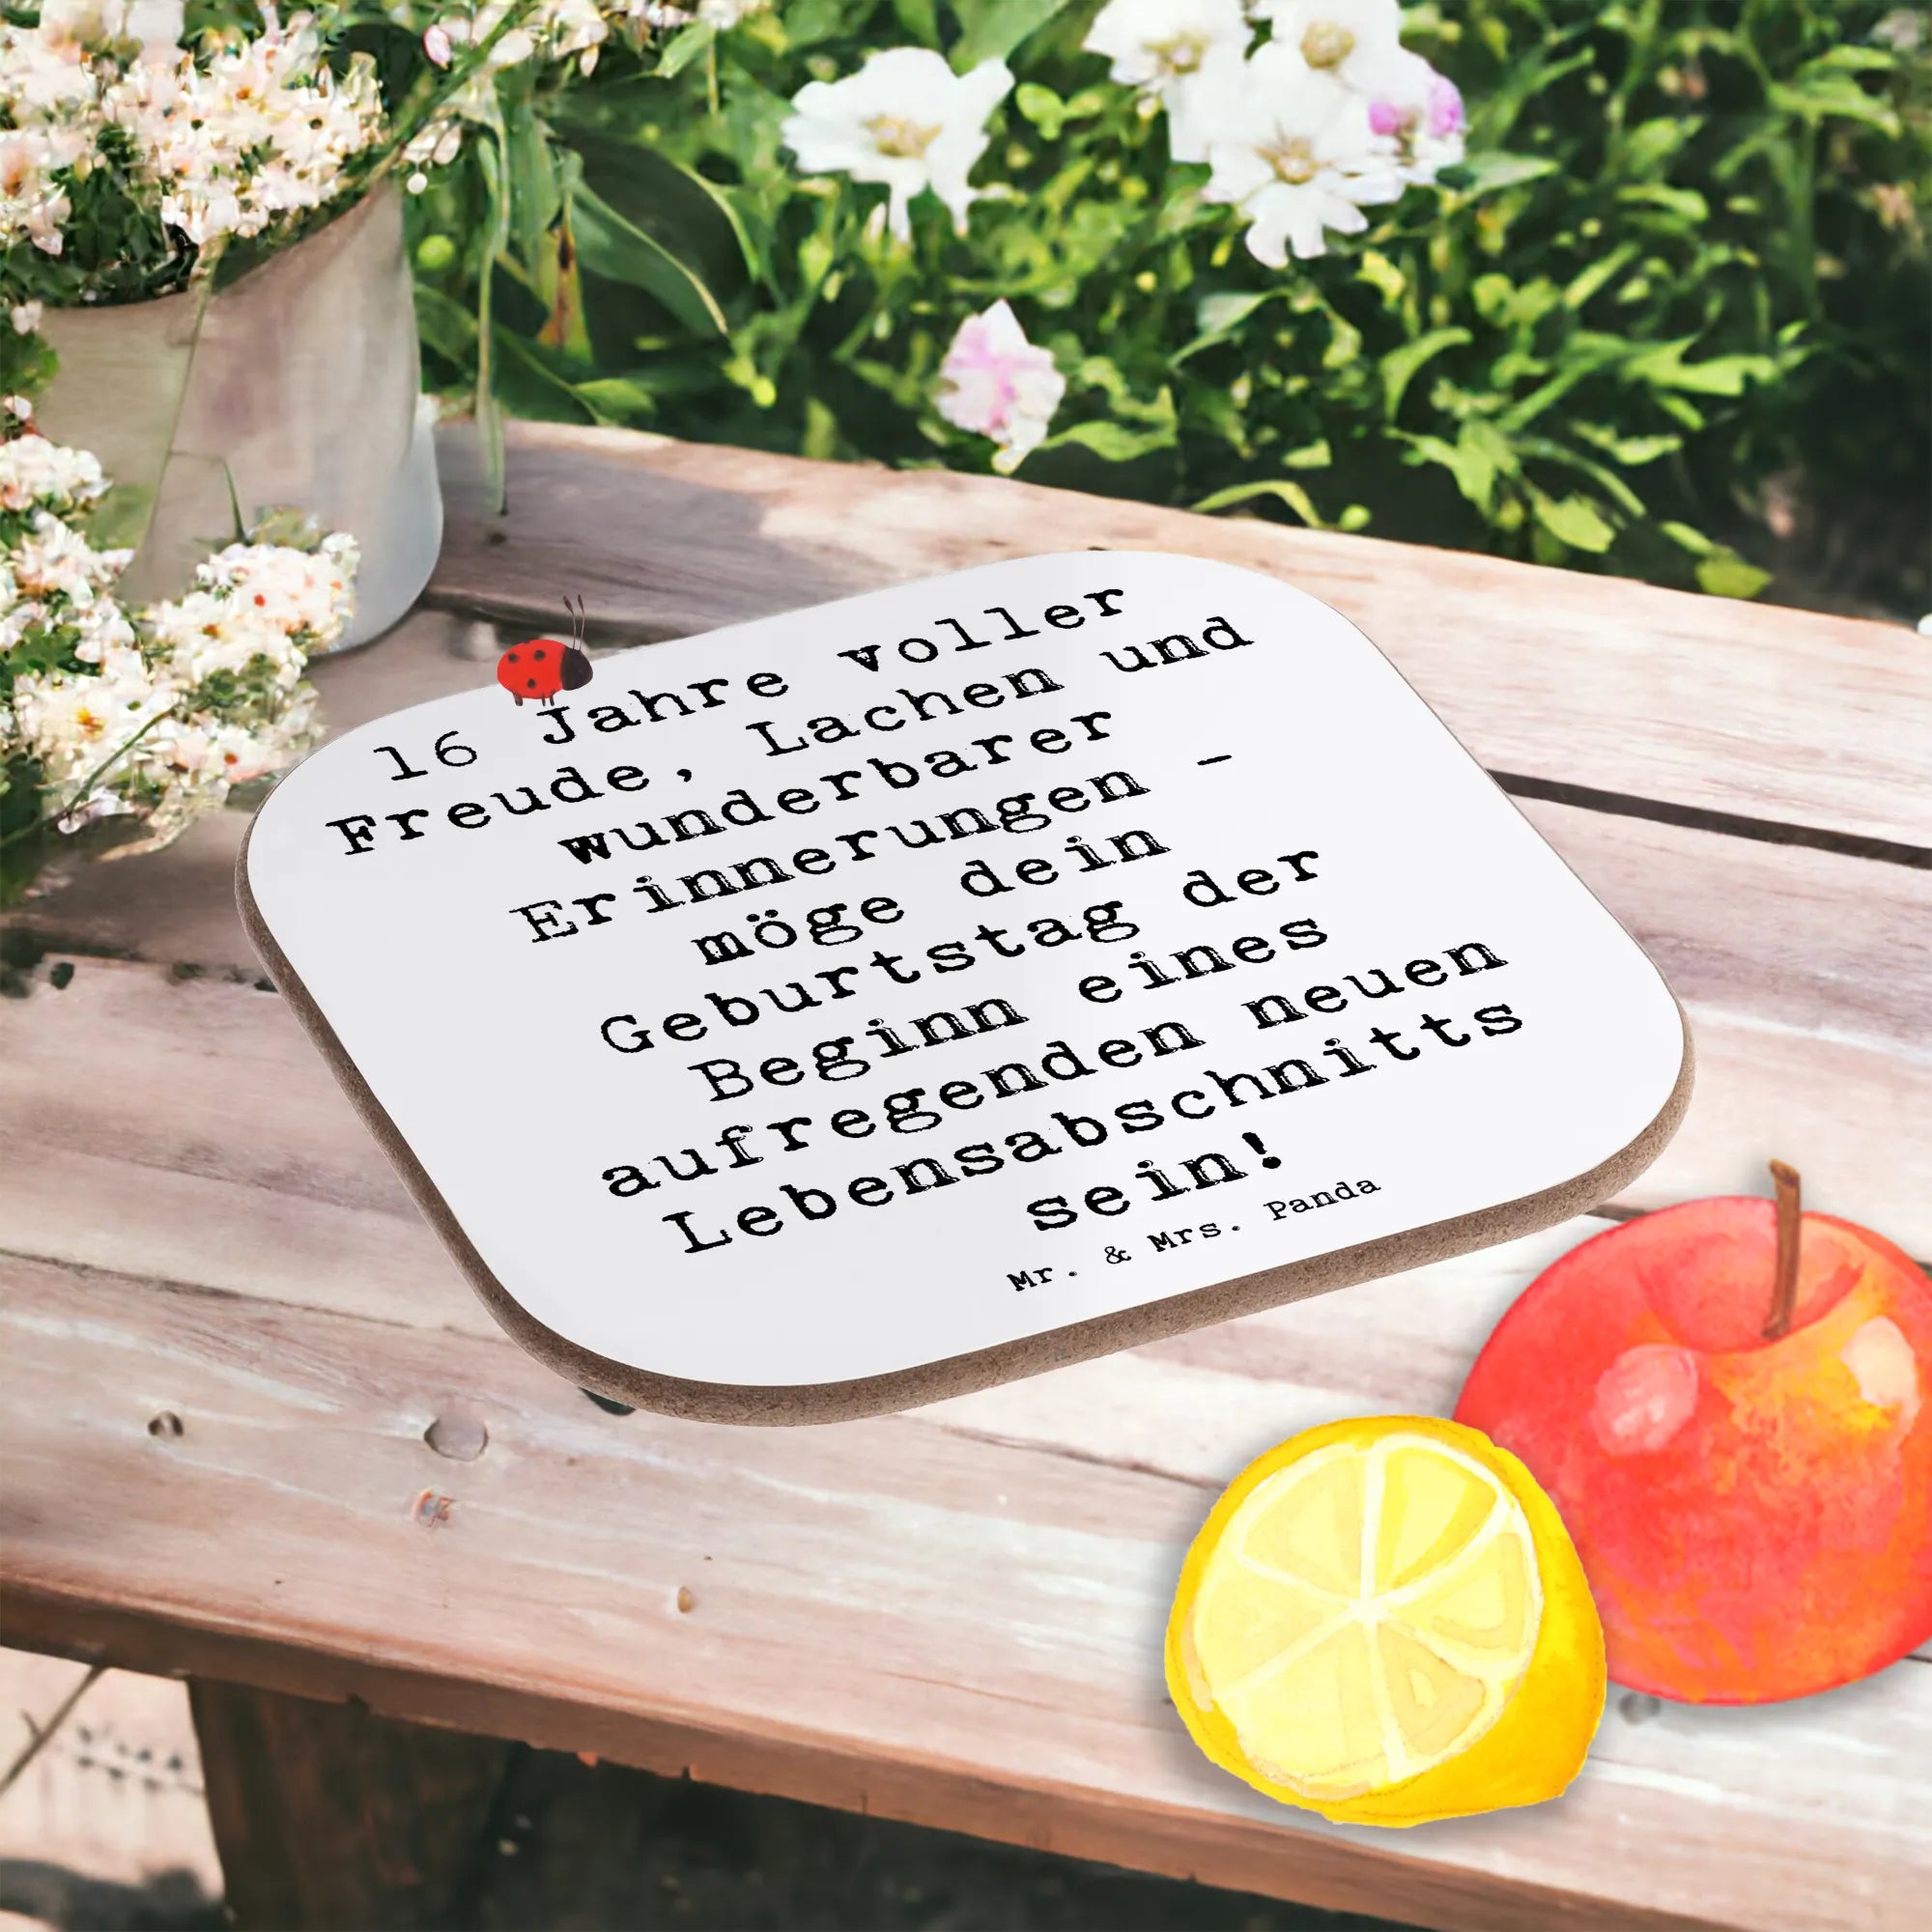 16 Jahre voller
Freude, Lachen und
wunderbarer
Erinnerungen -
möge dein
Geburtstag der
Beginn eines
aufregenden neuen
Lebensabschnitts
sein!
Mr. & Mrs. Panda